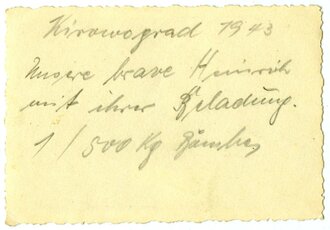 Kirowograd 1943
Unsere brave Heinrich
mit ihrer Beladung.
1/500 Kg Bombe,